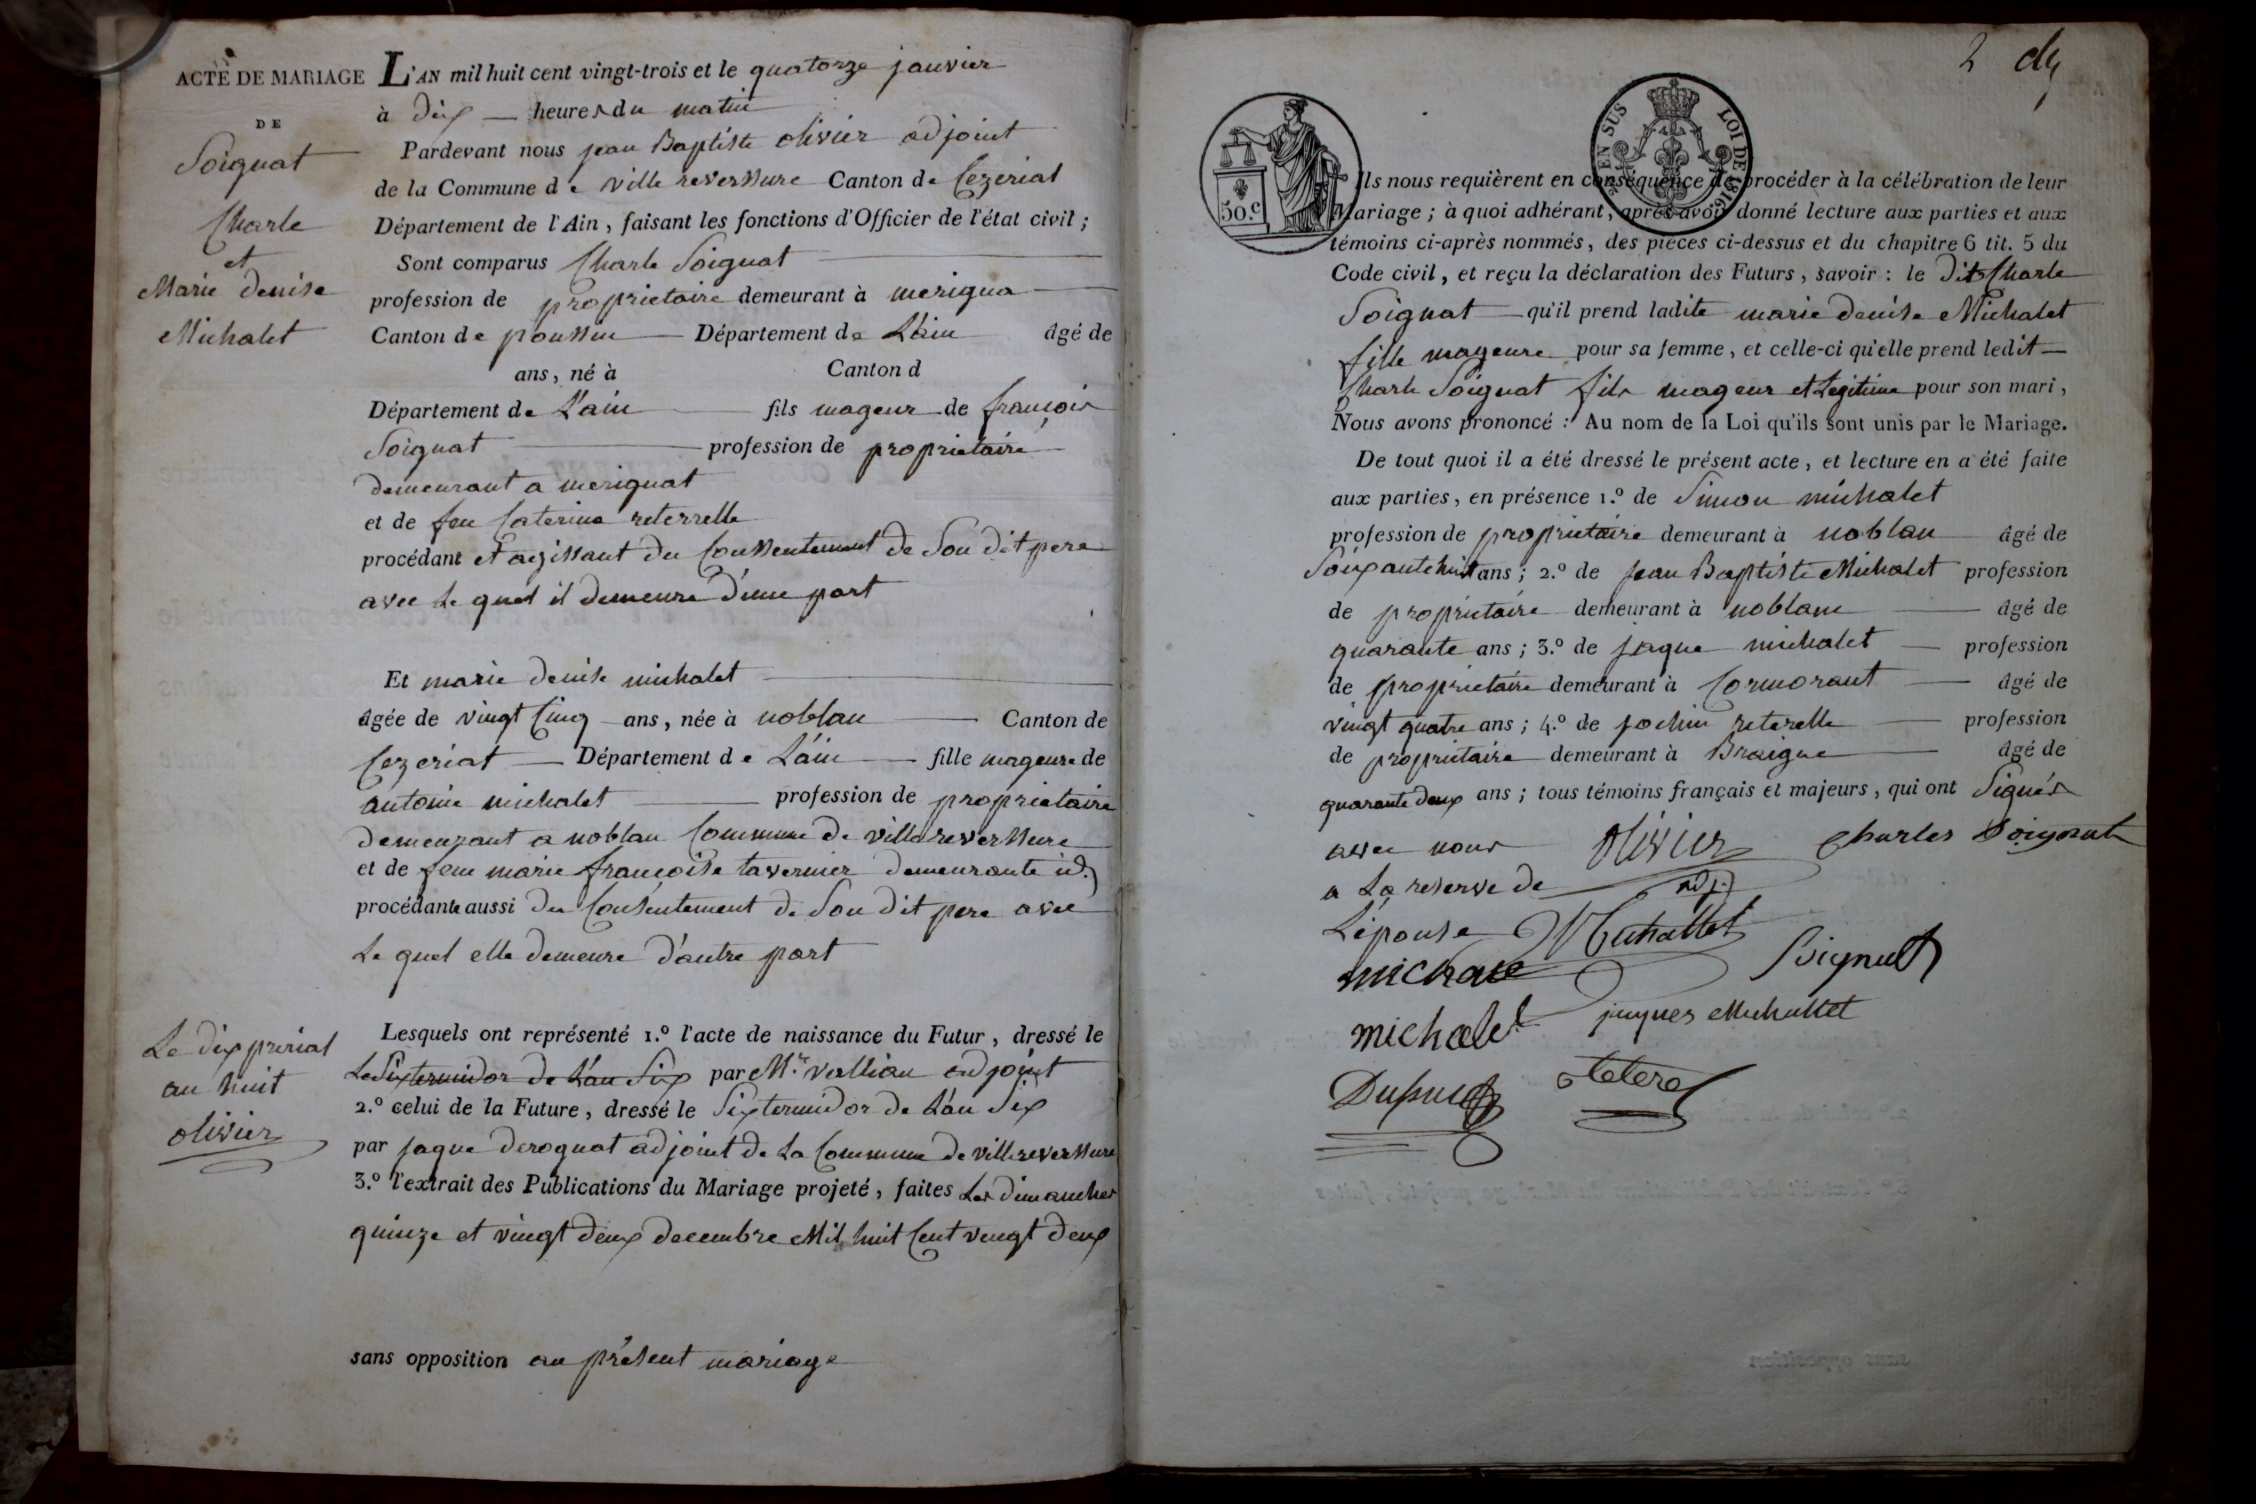 ACTE DE MARIAGE
DE
Soignat
Charle
et
Marie denise
Michalet
L'AN mil huit cent vingt-trois et le quatorze janvier
à dix heures du matin
Pardevant nous jean Baptiste olivier adjoint
de la Commune de villereverssure Canton de Cezeriat
Département de l'Ain, faisant les fonctions d'Officier de l'état civil;
Sont comparus Charle Soignat
profession de proprietaire demeurant à merigna
Canton de ponssin Département de L'ain âgé de
ans, né à Canton d
Département de L'ain fils mageur de francois
Soignat profession de proprietaire
demeurant a merignat
et de feu Caterine reterrelle
procédant et agissant du Conssentement de Son dit pere
avec Le quel il demeure d'une part
Et marie denise michalet
âgée de vingt Cinq ans, née à noblan Canton de
Cezeriat Département de L'ain fille mageure de
antoine michalet profession de proprietaire
demeurant a noblan Commune de villereverssure
et de feue marie françoise tavernier demeurante id.
procédante aussi du Consentement de Son dit pere avec
Le quel elle demeure d'autre part
Le dix prerial
an huit
olivier
Lesquels ont représenté 1.º l'acte de naissance du Futur, dressé le
Le Six termidor de L'an Six par Mr. vallian adjoint
2.º celui de la Future, dressé le Six termidor de L'an Six
par jaque derognat adjoint de La Commune de villereverssure
3.º l'extrait des Publications du Mariage projeté, faites Les dimanches
quinze et vingt deux decembre Mil huit Cent vingt deux
sans opposition au présent mariage
2
50.c
EN SUS LOI DE 1816
Ils nous requièrent en conséquence de procéder à la célébration de leur
Mariage; à quoi adhérant, après avoir donné lecture aux parties et aux
témoins ci-après nommés, des pièces ci-dessus et du chapitre 6 tit. 5 du
Code civil, et reçu la déclaration des Futurs, savoir: le dit Charle
Soignat qu'il prend ladite marie denise Michalet
fille mageure pour sa femme, et celle-ci qu'elle prend ledit
Charle Soignat fils mageur et Legitime pour son mari,
Nous avons prononcé: Au nom de la Loi qu'ils sont unis par le Mariage.
De tout quoi il a été dressé le présent acte, et lecture en a été faite
aux parties, en présence 1.º de Simon michalet
profession de proprietaire demeurant à noblan âgé de
Soixante huit ans; 2.º de jean Baptiste Michalet profession
de proprietaire demeurant à noblanc âgé de
quarante ans; 3.º de jaque michalet profession
de proprietaire demeurant à Cormorant âgé de
vingt quatre ans; 4.º de jochin reterelle profession
de proprietaire demeurant à Braigne âgé de
quarante deux ans; tous témoins français et majeurs, qui ont Signés
avec nous Olivier Charles Soignat
a La reserve de adj.
L'épouse Michallet
michale Soignat
michalet jaques Michallet